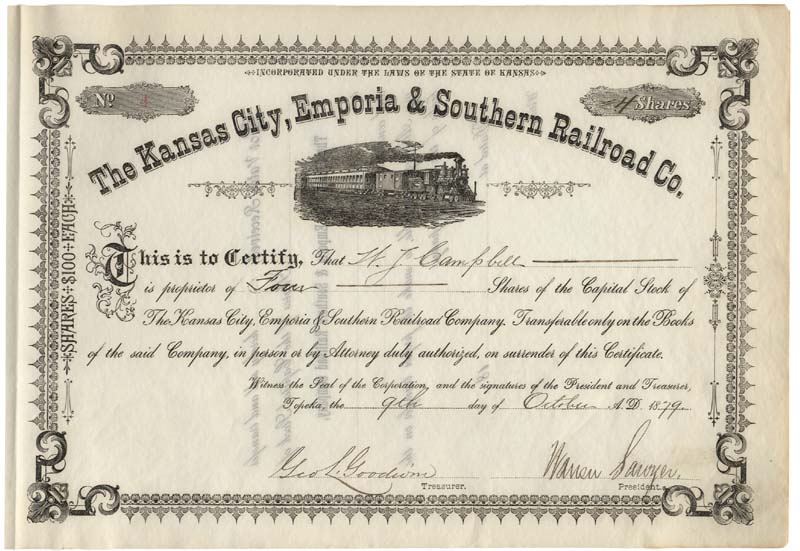 INCORPORATED UNDER THE LAWS OF THE STATE OF KANSAS
No 1
4 Shares
The Kansas City, Emporia & Southern Railroad Co.
SHARES $100 EACH
This is to Certify, That W. J. Campbell
is proprietor of Four Shares of the Capital Stock of
The Kansas City, Emporia & Southern Railroad Company. Transferable only on the Books
of the said Company, in person or by Attorney duly authorized, on surrender of this Certificate.
Witness the Seal of the Corporation, and the signatures of the President and Treasurer,
Topeka, the 9th day of October A.D. 1879.
Geo L. Goodwin Warren Sawyer
Treasurer. President.